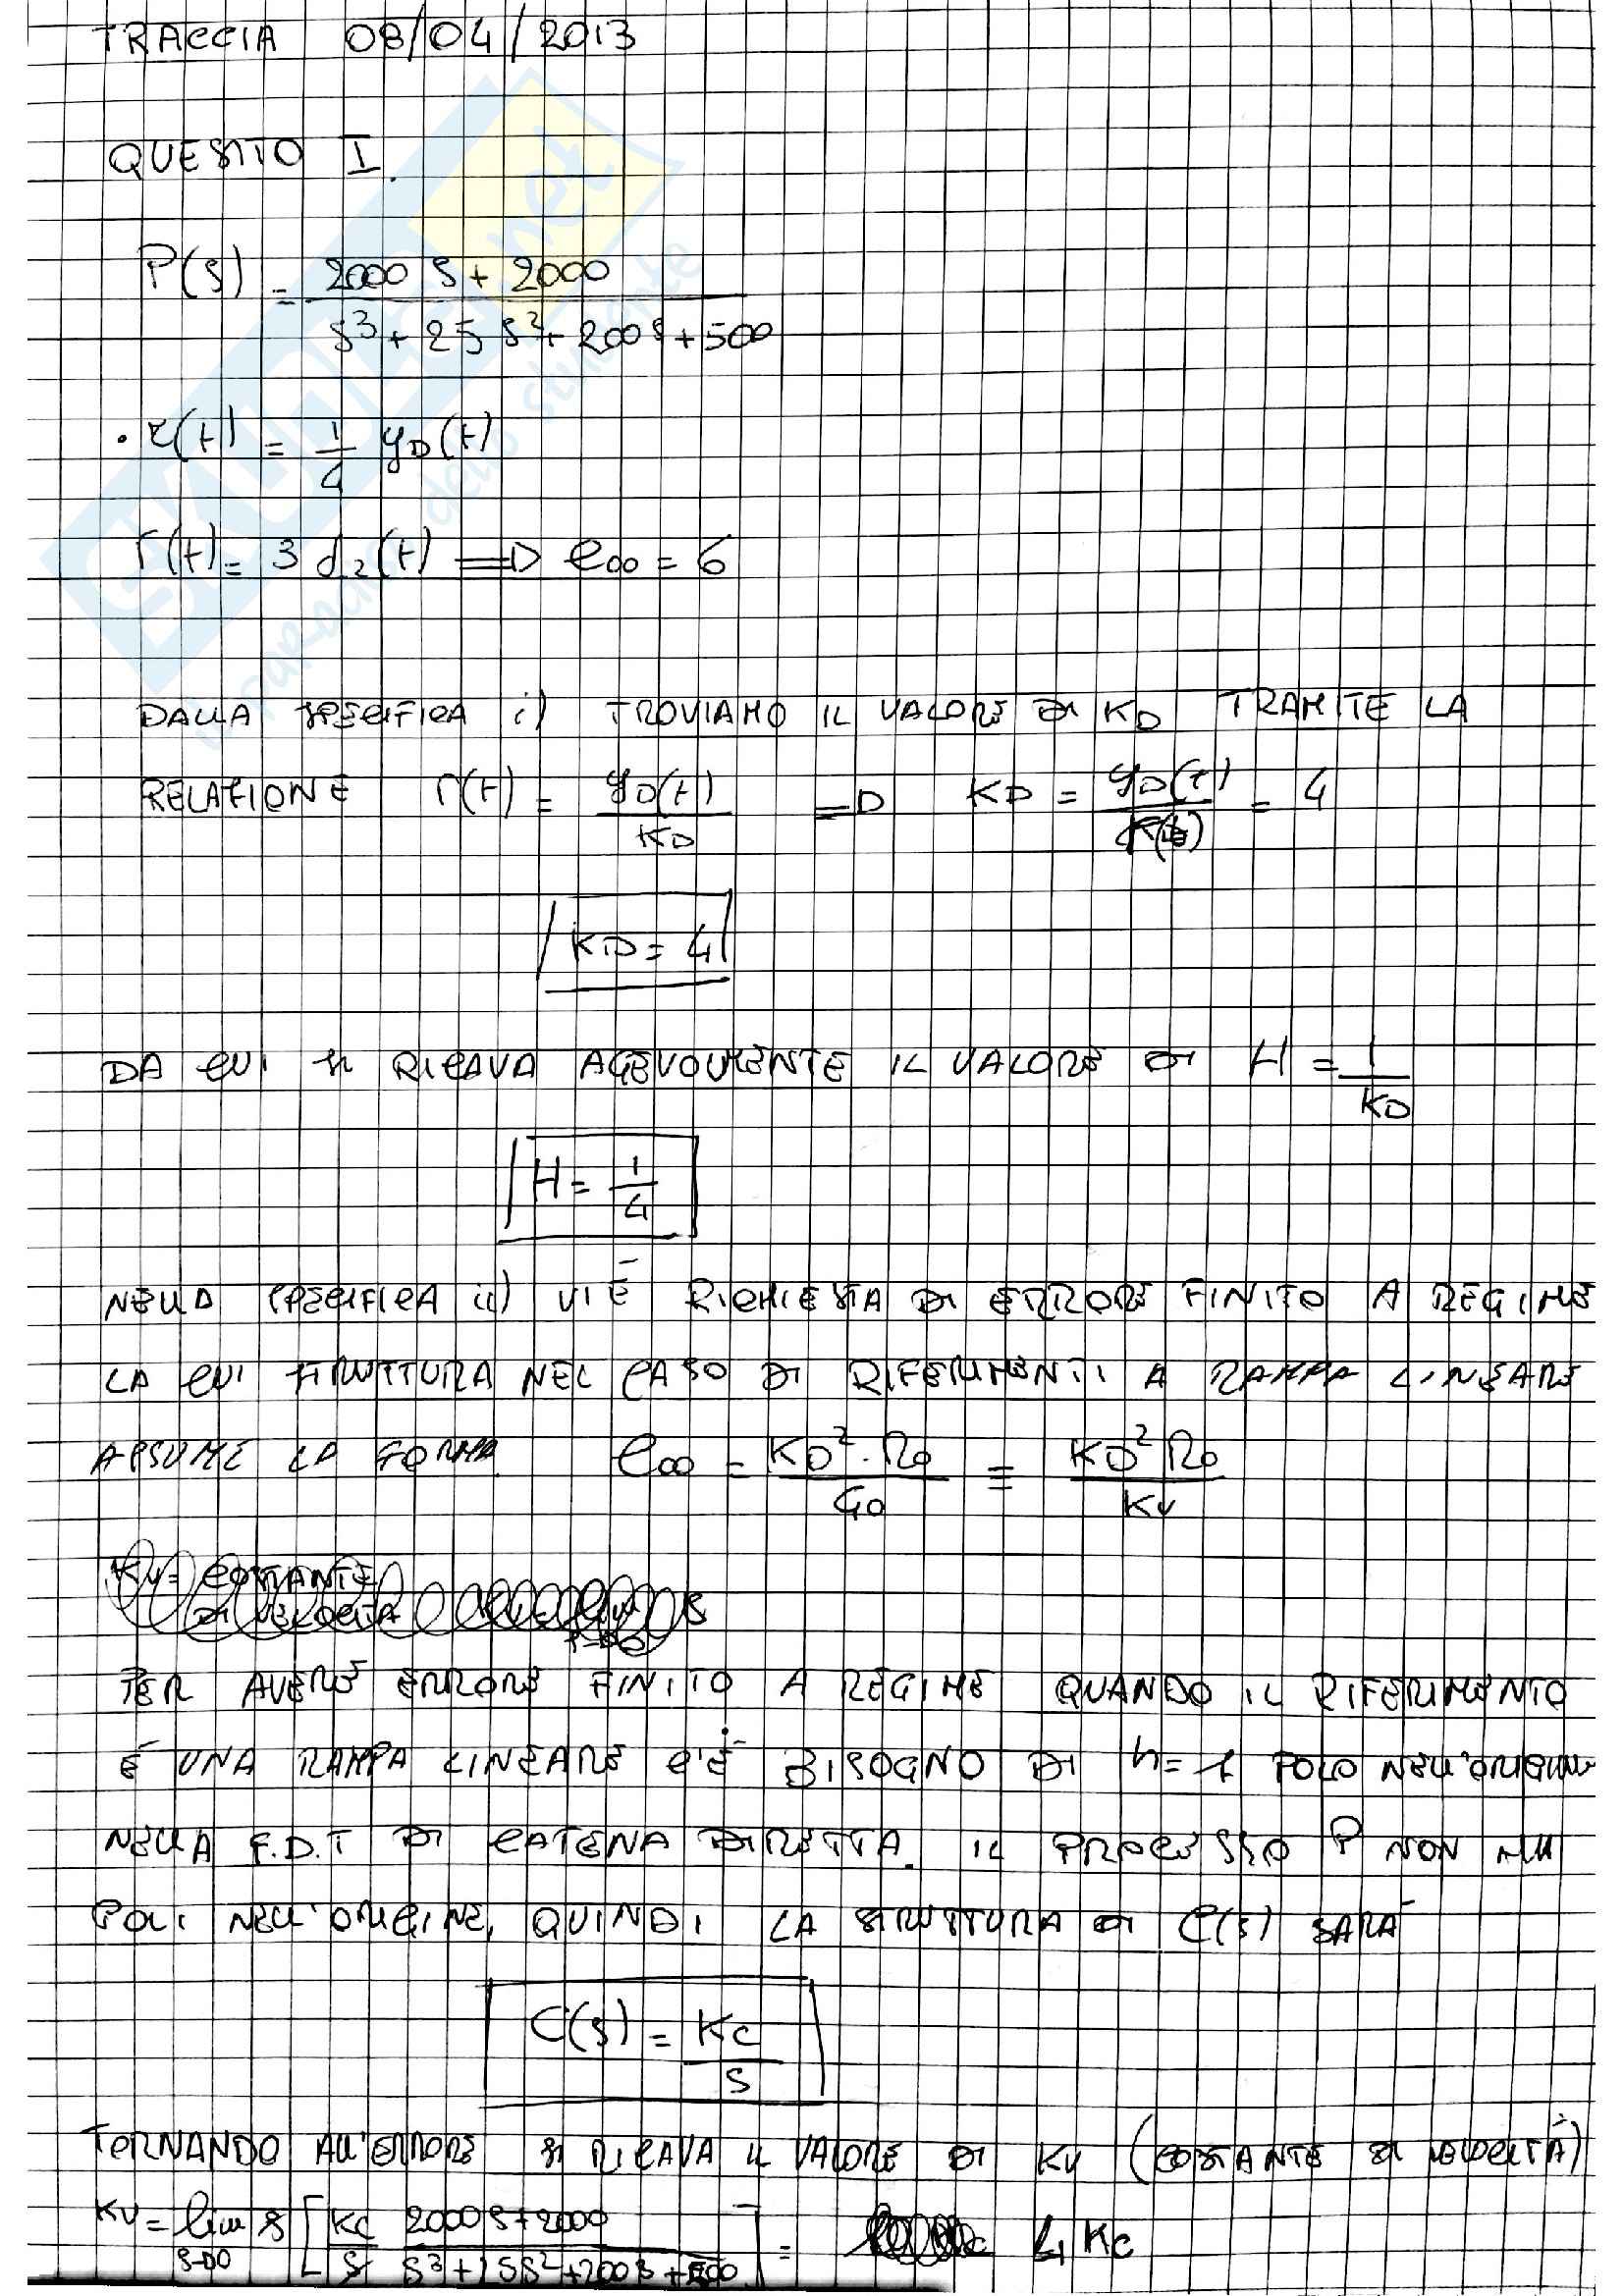 TRACCIA 08/04/2013
QUESITO I.
P(s) = 2000 s + 2000 / s³ + 25 s² + 200 s + 500
• r(t) = 1/4 yD(t)
r(t) = 3 d₂(t) => e∞ = 6
DALLA SPECIFICA i) TROVIAMO IL VALORE DI KD TRAMITE LA
RELAZIONE r(t) = yD(t)/KD => KD = yD(t)/r(t) = 4
KD = 4
DA CUI SI RICAVA AGEVOLMENTE IL VALORE DI H = 1/KD
H = 1/4
NELLA SPECIFICA ii) VI È RICHIESTA DI ERRORE FINITO A REGIME
LA CUI STRUTTURA NEL CASO DI RIFERIMENTI A RAMPA LINEARE
ASSUME LA FORMA e∞ = KD² · R₀/G₀ = KD² R₀/Kv
Kv = COSTANTE
DI VELOCITÀ
PER AVERE ERRORE FINITO A REGIME QUANDO IL RIFERIMENTO
È UNA RAMPA LINEARE C'È BISOGNO DI h = 1 POLO NELL'ORIGINE
NELLA F.D.T DI CATENA DIRETTA. IL PROCESSO P NON HA
POLI NELL'ORIGINE, QUINDI LA STRUTTURA DI C(s) SARÀ
C(s) = Kc/s
TORNANDO ALL'ERRORE SI RICAVA IL VALORE DI Kv (COSTANTE DI VELOCITÀ)
Kv = lim s→0 s [Kc/s 2000 s + 2000 / s³ + 25 s² + 200 s + 500] = 4 Kc
SKUOLA.net
il paradiso dello studente